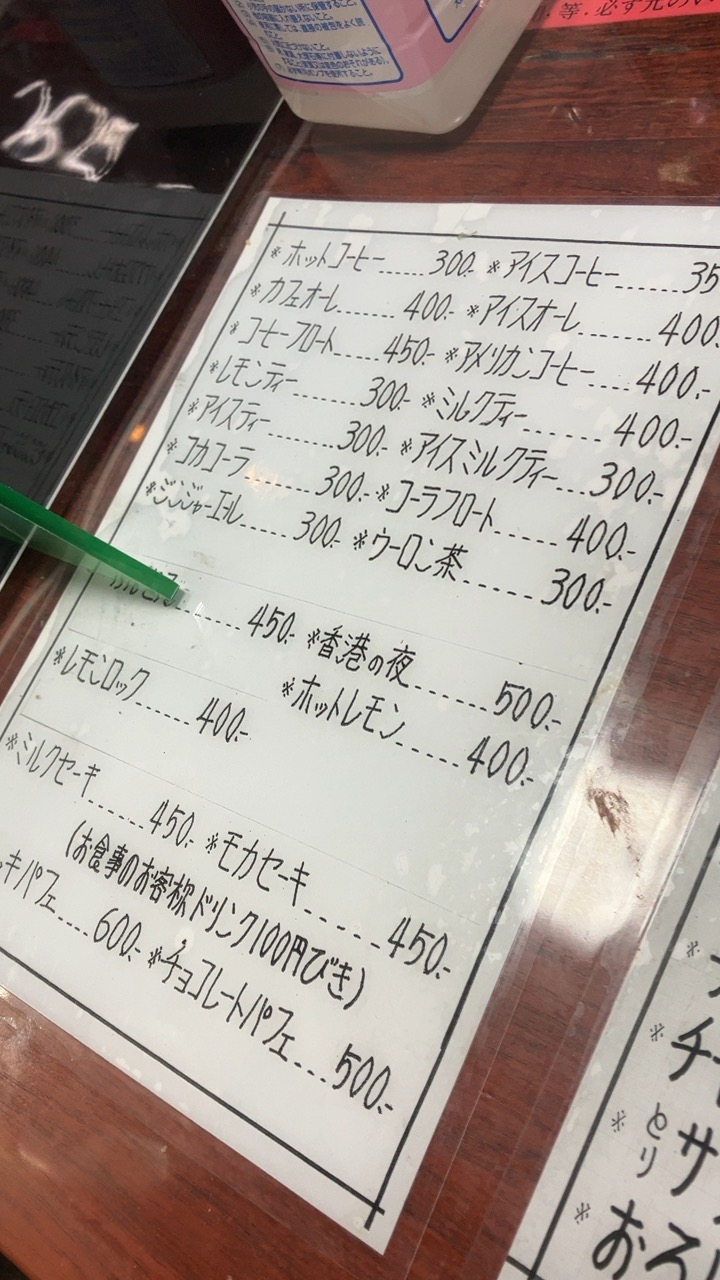 等.必ず元の
＊ホットコーヒー......300.- ＊アイスコーヒー......35
＊カフェオーレ.......400.- ＊アイスオーレ.......400.
＊コーヒーフロート.....450.- ＊アメリカンコーヒー....400.-
＊レモンティー.......300.- ＊ミルクティー.......400.-
＊アイスティー.......300.- ＊アイスミルクティー...300.-
＊コカコーラ......300.- ＊コーラフロート......400.-
＊ジンジャーエール.....300.- ＊ウーロン茶......300.-
......450.- ＊香港の夜......500.-
＊レモンロック......400.- ＊ホットレモン......400.-
＊ミルクセーキ.....450.- ＊モカセーキ......450.-
(お食事のお客様ドリンク100円びき)
キパフェ....600.- ＊チョコレートパフェ...500.-
＊
＊チ
＊とりサ
＊お